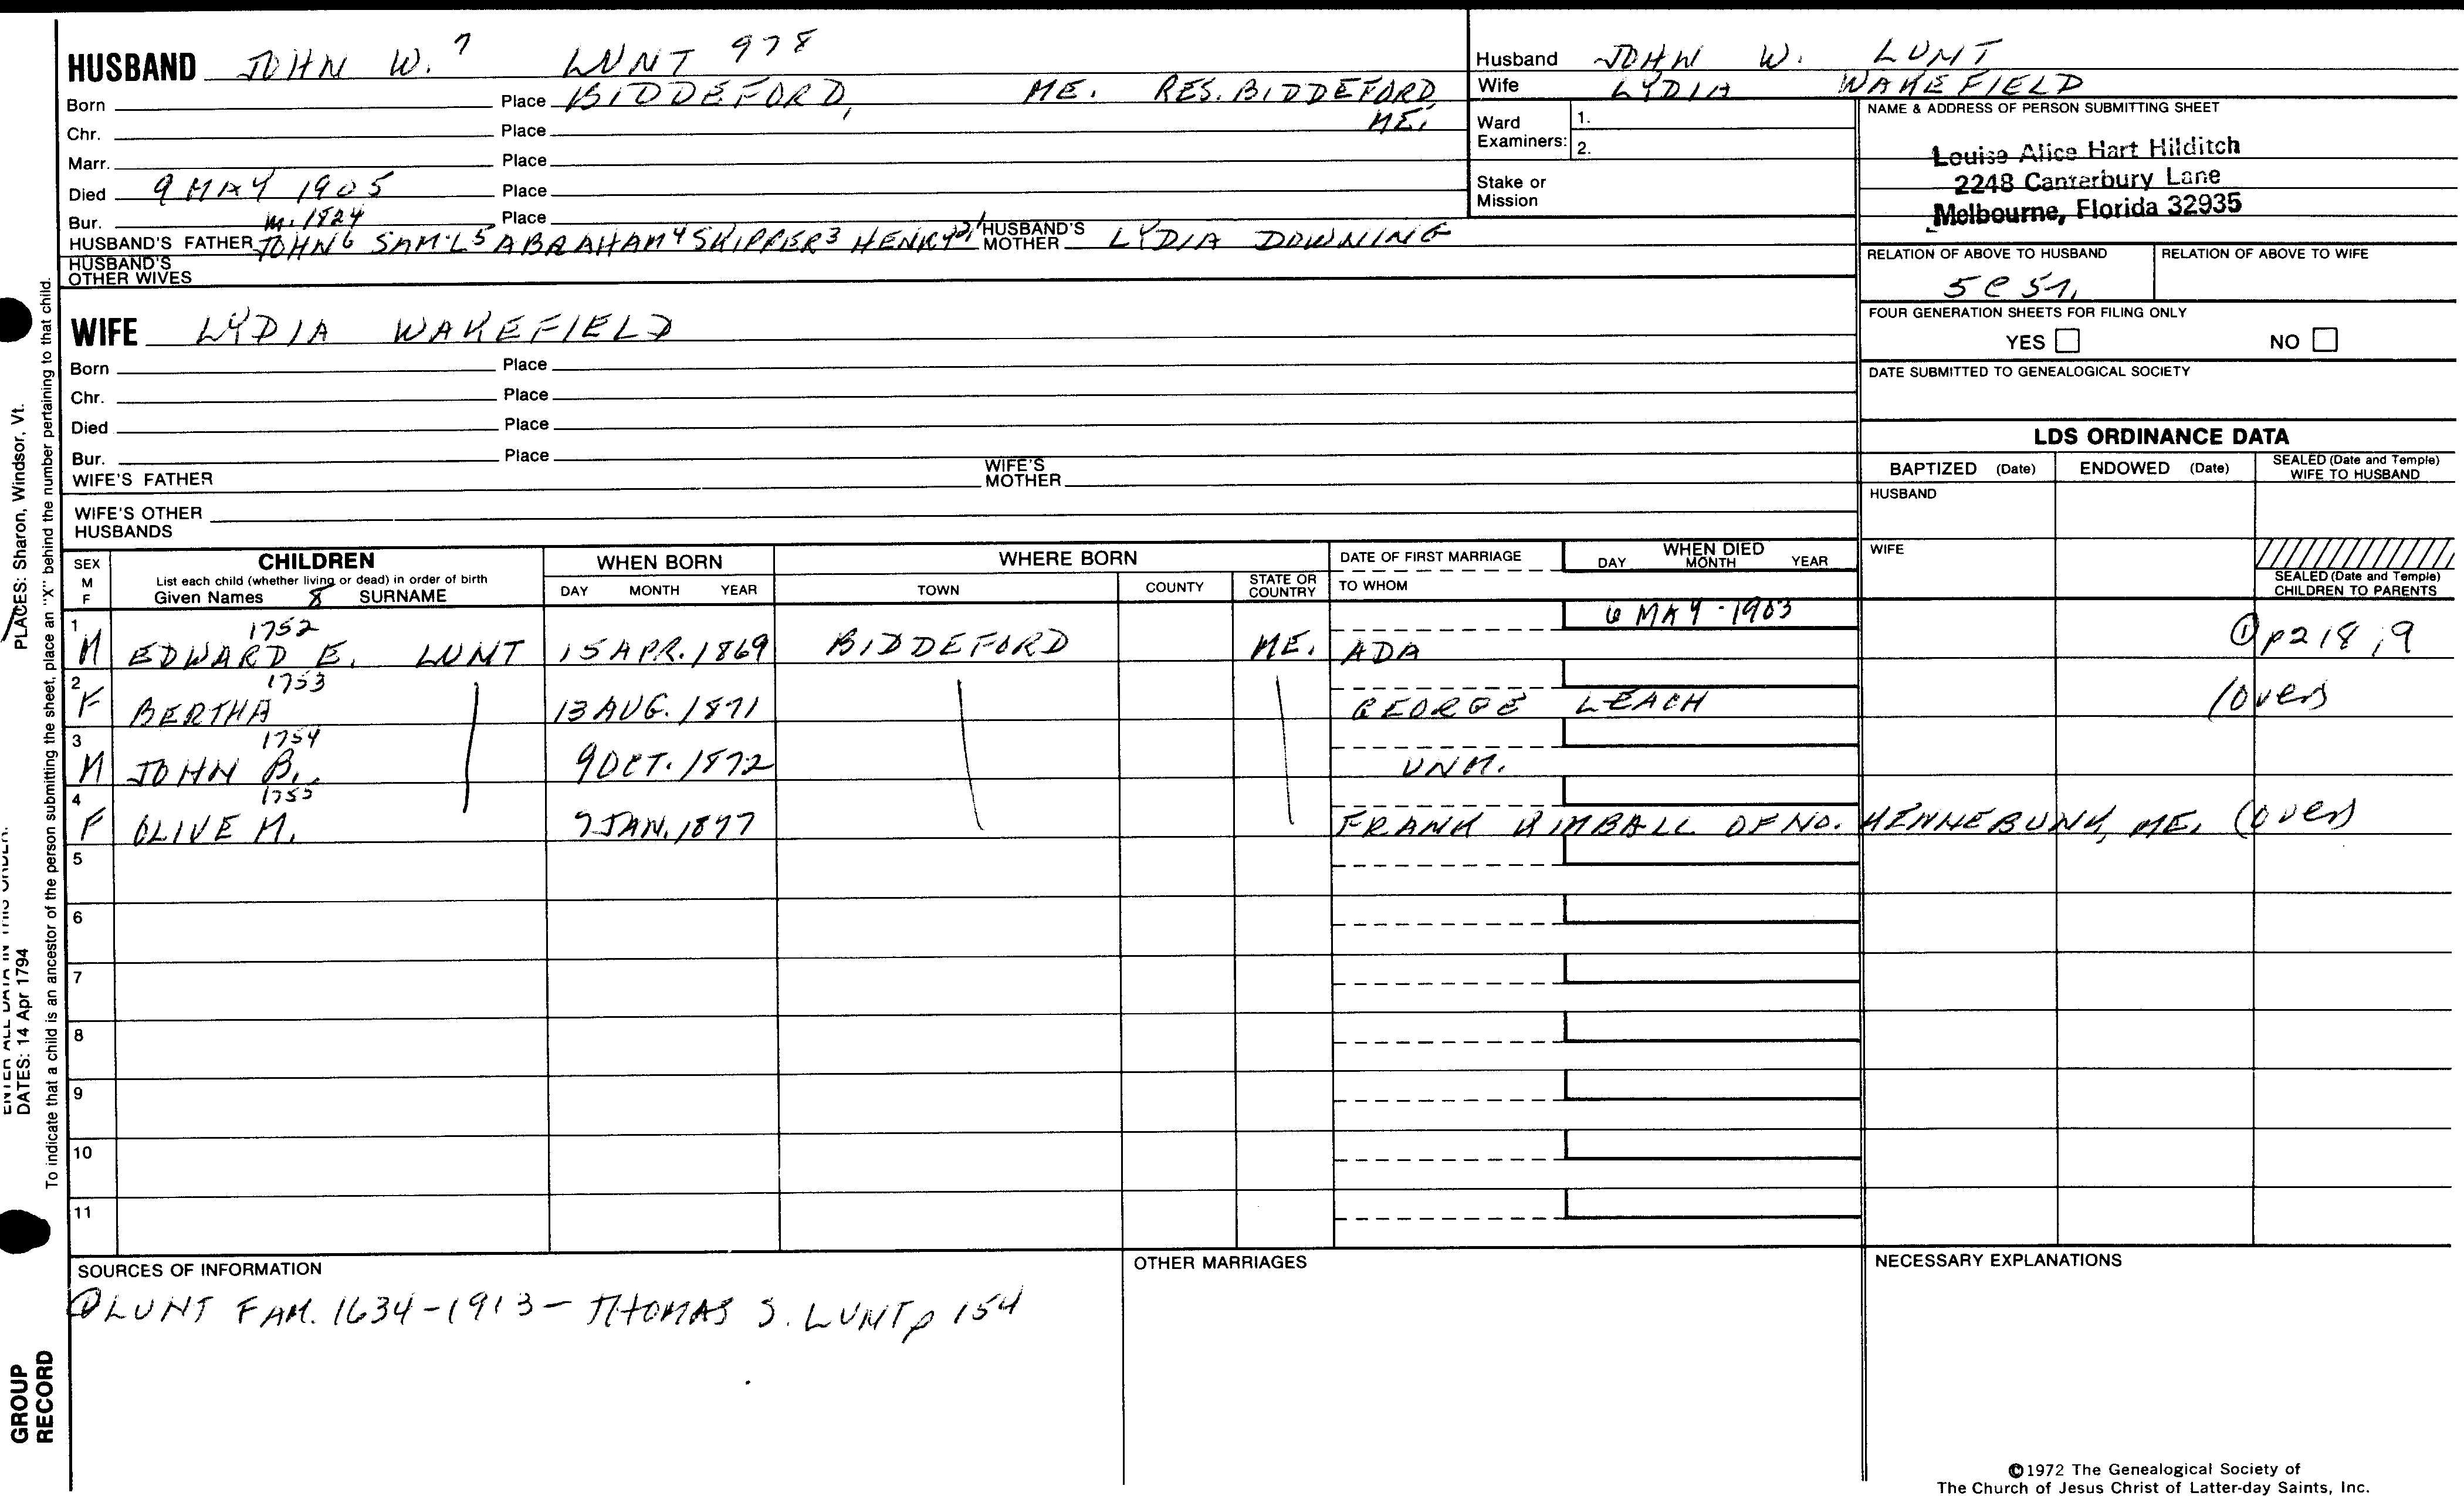 HUSBAND JOHN W. 7 LUNT 978
Born Place BIDDEFORD, ME. RES. BIDDEFORD, ME.
Chr. Place
Marr. Place
Died 9 MAY 1905 Place
Bur. m. 1824 Place
HUSBAND'S FATHER JOHN6 SAM'L5 ABRAHAM4 SKIPPER3 HENRY2,1 HUSBAND'S MOTHER LYDIA DOWNING
HUSBAND'S OTHER WIVES
Husband JOHN W. LUNT
Wife LYDIA WAKEFIELD
Ward Examiners: 1.
2.
Stake or Mission
NAME & ADDRESS OF PERSON SUBMITTING SHEET
Louise Alice Hart Hilditch
2248 Canterbury Lane
Melbourne, Florida 32935
RELATION OF ABOVE TO HUSBAND RELATION OF ABOVE TO WIFE
FOUR GENERATION SHEETS FOR FILING ONLY
YES NO
DATE SUBMITTED TO GENEALOGICAL SOCIETY
WIFE LYDIA WAKEFIELD
Born Place
Chr. Place
Died Place
Bur. Place
WIFE'S FATHER WIFE'S MOTHER
WIFE'S OTHER HUSBANDS
LDS ORDINANCE DATA
BAPTIZED (Date) ENDOWED (Date) SEALED (Date and Temple) WIFE TO HUSBAND
HUSBAND
WIFE
SEALED (Date and Temple) CHILDREN TO PARENTS
SEX M F CHILDREN WHEN BORN WHERE BORN DATE OF FIRST MARRIAGE WHEN DIED
List each child (whether living or dead) in order of birth
Given Names 8 SURNAME DAY MONTH YEAR TOWN COUNTY STATE OR COUNTRY TO WHOM DAY MONTH YEAR
1 1752 6 MAY - 1903
M EDWARD E. LUNT 15 APR. 1869 BIDDEFORD ME. ADA ① p218,9
2 1753
F BERTHA 13 AUG. 1871 GEORGE LEACH (over)
3 1754
M JOHN B. 9 OCT. 1872 UNM.
4 1755
F OLIVE M. 7 JAN. 1877 FRANK KIMBALL OF NO. KENNEBUNK, ME. (over)
5
6
7
8
9
10
11
SOURCES OF INFORMATION OTHER MARRIAGES NECESSARY EXPLANATIONS
① LUNT FAM. 1634-1913 - THOMAS S. LUNT p 154
©1972 The Genealogical Society of
The Church of Jesus Christ of Latter-day Saints, Inc.
PLACES: Sharon, Windsor, Vt.
DATES: 14 Apr 1794
To indicate that a child is an ancestor of the person submitting the sheet, place an "X" behind the number pertaining to that child.
GROUP
RECORD